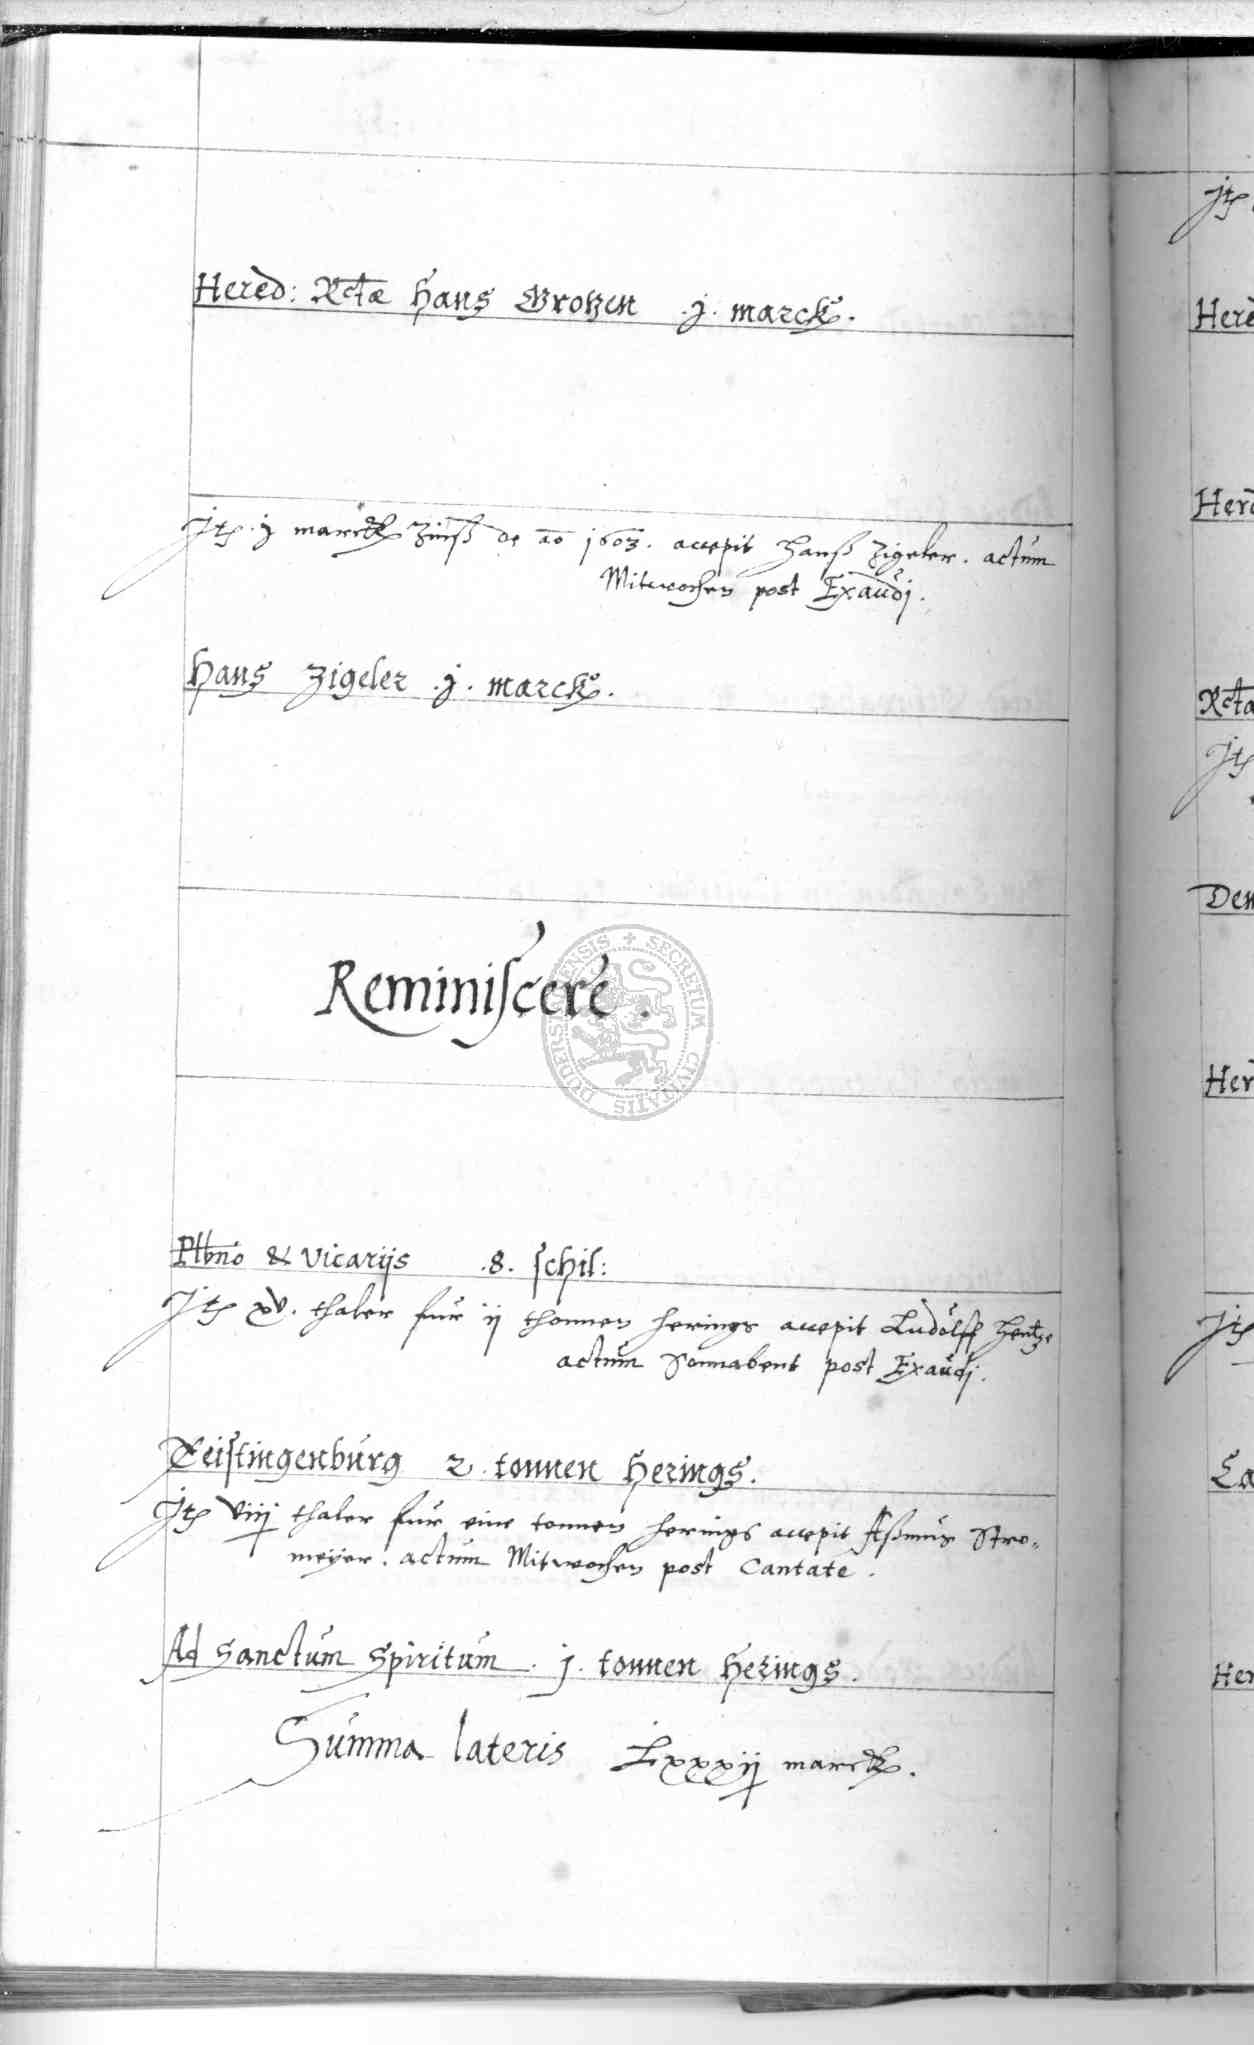 Hered: Rctæ Hans Grotzen .j. marck.
Jt j marck Zinß de ao 1603. accepit Hanß Zigeler. actum
Mitwochen post Exaudj.
Hans Zigeler .j. marck.
Reminiscere.
DUDERSTADENSIS + SECRETUM CIVITATIS
Plbno & vicarijs .8. schil:
Jt xv. thaler fur ij thonnen herings accepit Ludolff Hentze
actum Sonnabent post Exaudj.
Teistingenburg 2 tonnen Herings.
Jt viij thaler fur eine tonnen herings accepit Aßmus Stro=
meyer. actum Mitwochen post Cantate.
Ad Sanctum Spiritum . j. tonnen Herings.
Summa lateris Lxxxij marck.
Jt
Here
Herd
Rcta
Jt
Dem
Her
Jt
La
Her